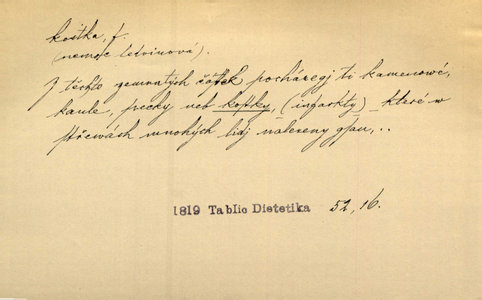 kostka, f.
(nemoc letvinová).
Z těchto zemnatých částek pocházegj ti kamenowé,
kaule, pecky neb kostky, (infarkty) které w
střewách mnohých lidj nalezeny gsau, ..
1819 Tablic Dietetika 52, 16.